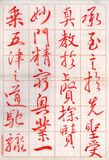 承至言於先聖受
真教於上賢探賾
妙門精窮奧業一
乘五律之道馳驟